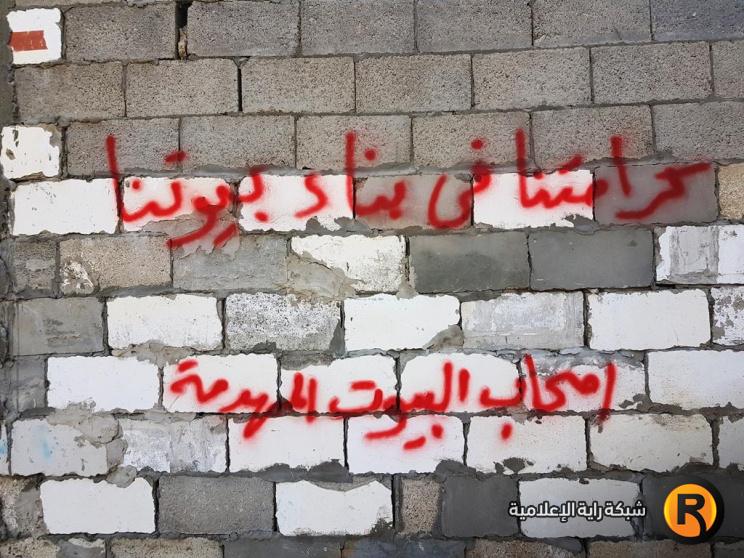 كرامتنا في بناء بيوتنا
اصحاب البيوت المهدمة
شبكة راية الإعلامية
R